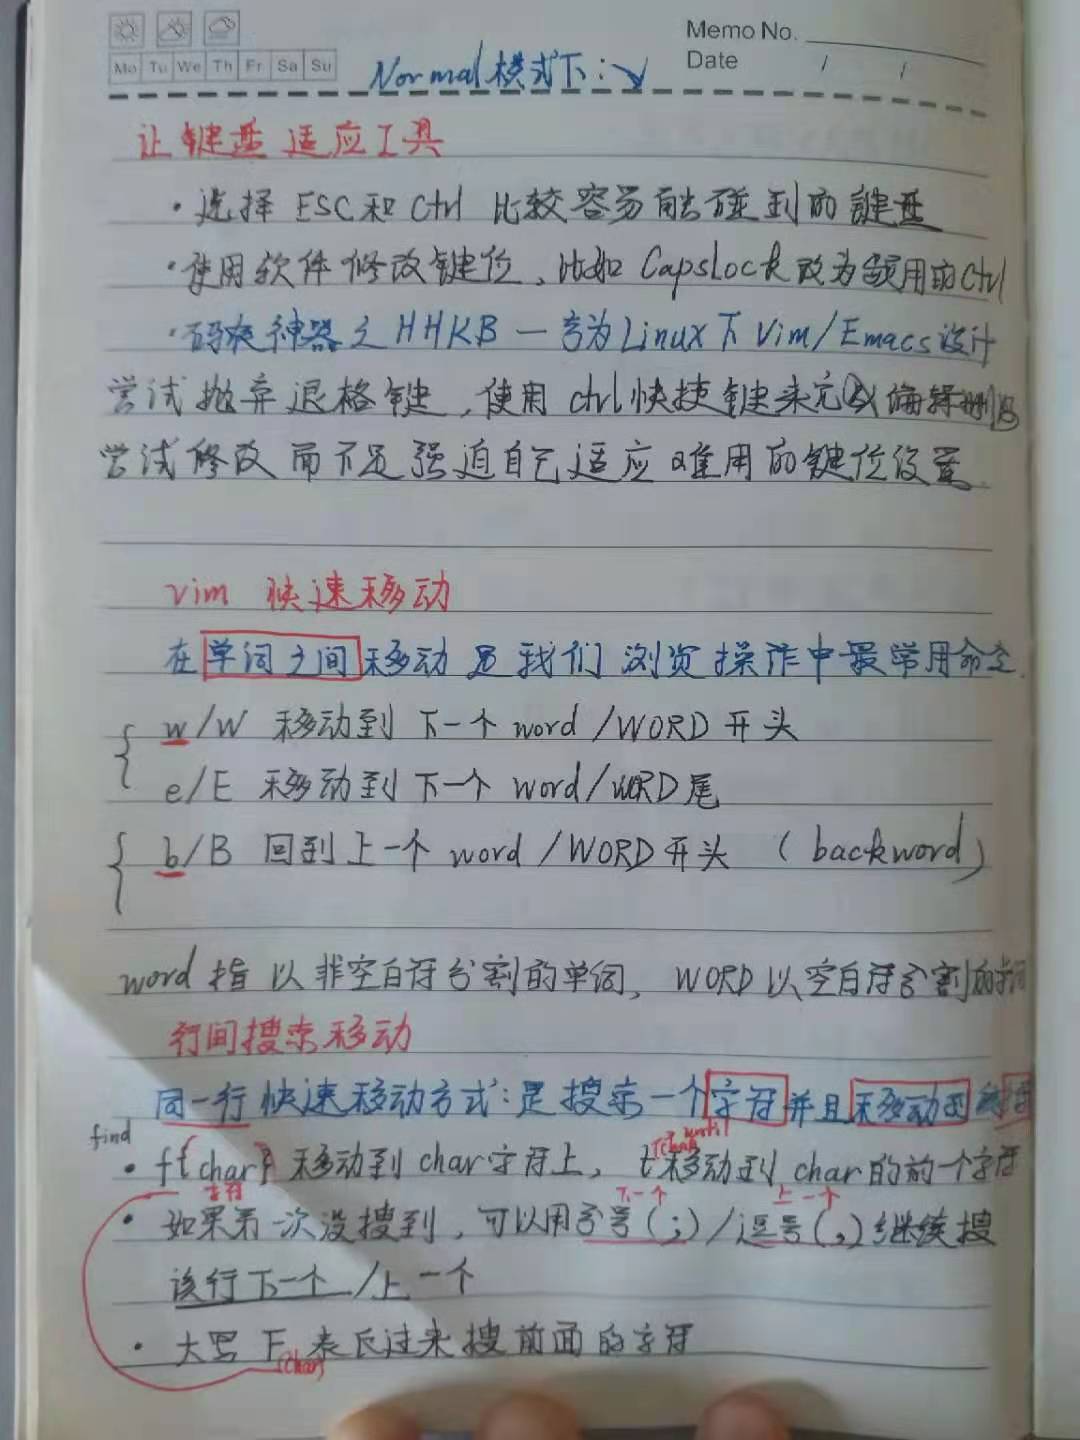 Memo No.
Mo Tu We Th Fr Sa Su
Date / /
Normal模式下:↘
让键盘适应工具
·选择 ESC和Ctrl 比较容易能碰到的键盘
·使用软件修改键位、比如 CapsLock改为常用的Ctrl
·码农神器之HHKB一 专为Linux下Vim/Emacs设计
尝试抛弃退格键,使用 ctrl快捷键来完成编辑删除
尝试修改而不是强迫自己适应难用的键位设置.
vim 快速移动
在单词之间移动是我们浏览操作中最常用命令.
w/W 移动到 下一个 word/WORD开头
e/E 移动到下一个 word/WORD尾
b/B 回到上一个 word/WORD开头 (backword)
word 指 以非空白符分割的单词, WORD以空白符分割的单词
行间搜索移动
同一行快速移动方式:是搜索一个字符并且移动到
find
until
{char}
· f{char} 移动到char字符上, t移动到 char的前一个字符
字符 下一个 上一个
· 如果第一次没搜到,可以用分号(;)/逗号(,)继续搜
该行下一个/上一个
· 大写 F 表反过来搜前面的字符
{char}